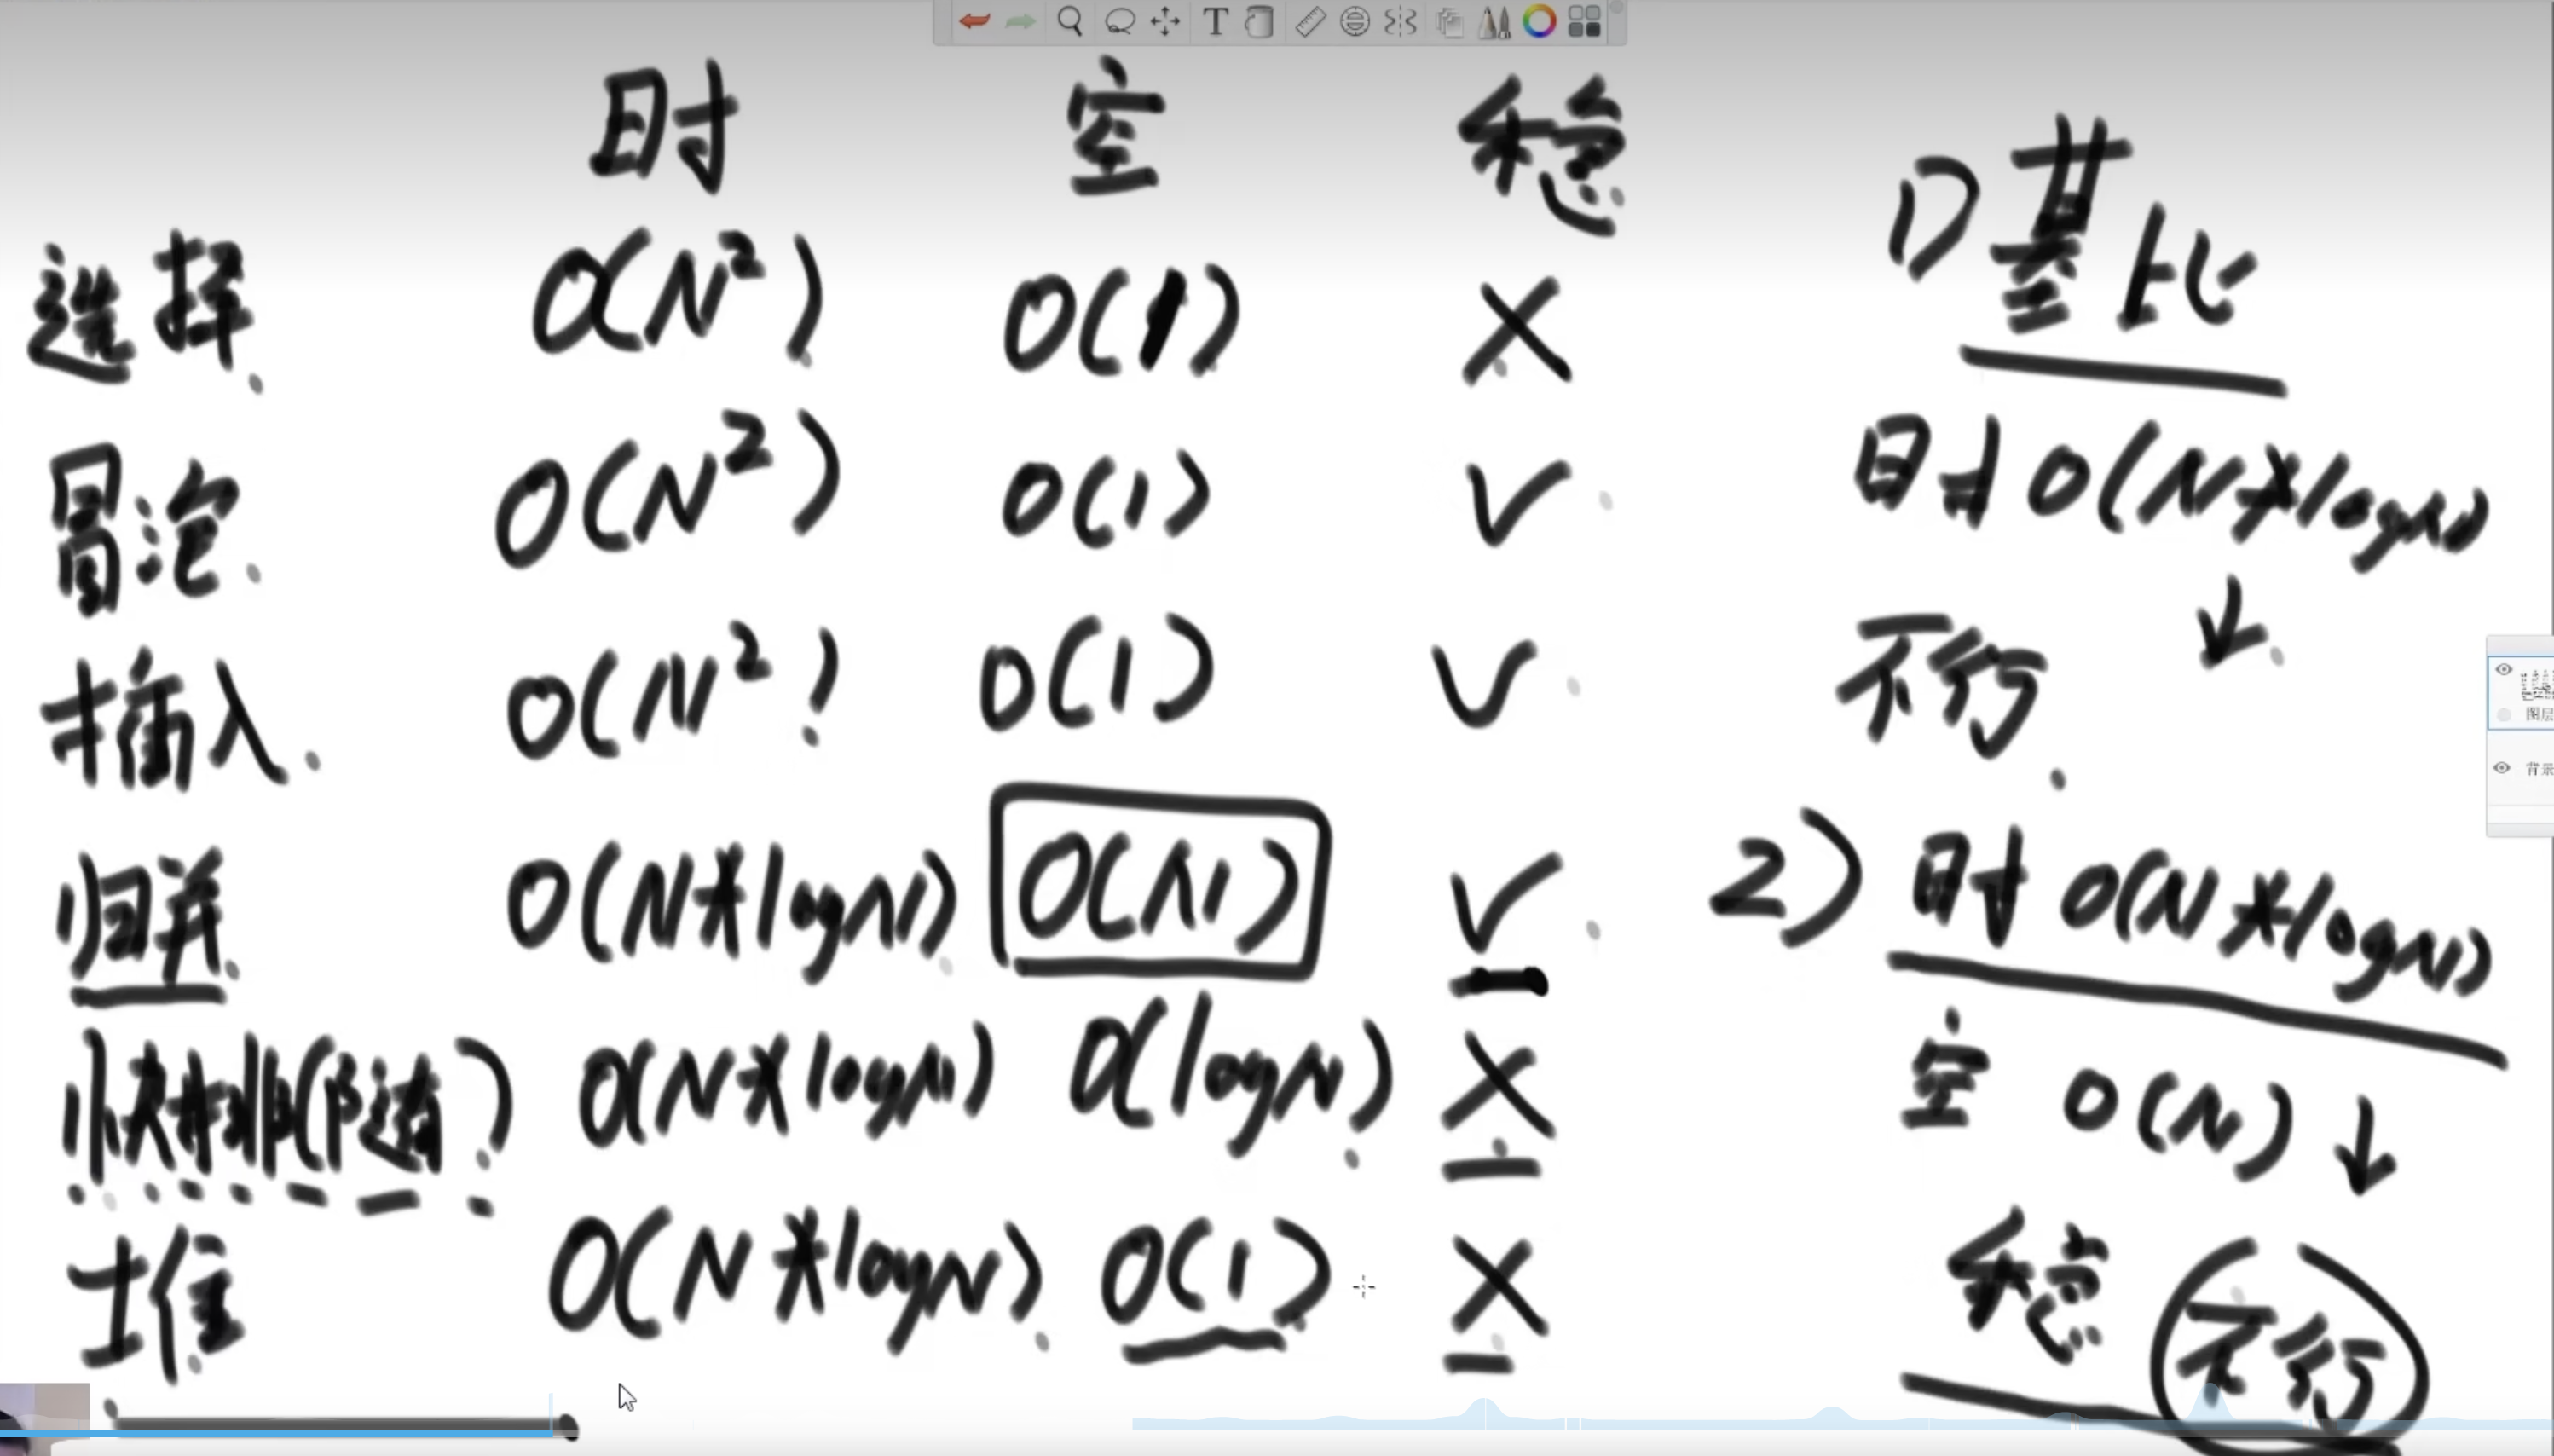 时 空 稳
选择 O(N²) O(1) X
冒泡 O(N²) O(1) √
插入 O(N²) O(1) √
归并 O(N*logN) O(N) √
快排(随) O(N*logN) O(logN) X
堆 O(N*logN) O(1) X
1) 基比
时 O(N*logN)
↓
不行
2) 时 O(N*logN)
空 O(N) ↓
稳 不行
图层
背景